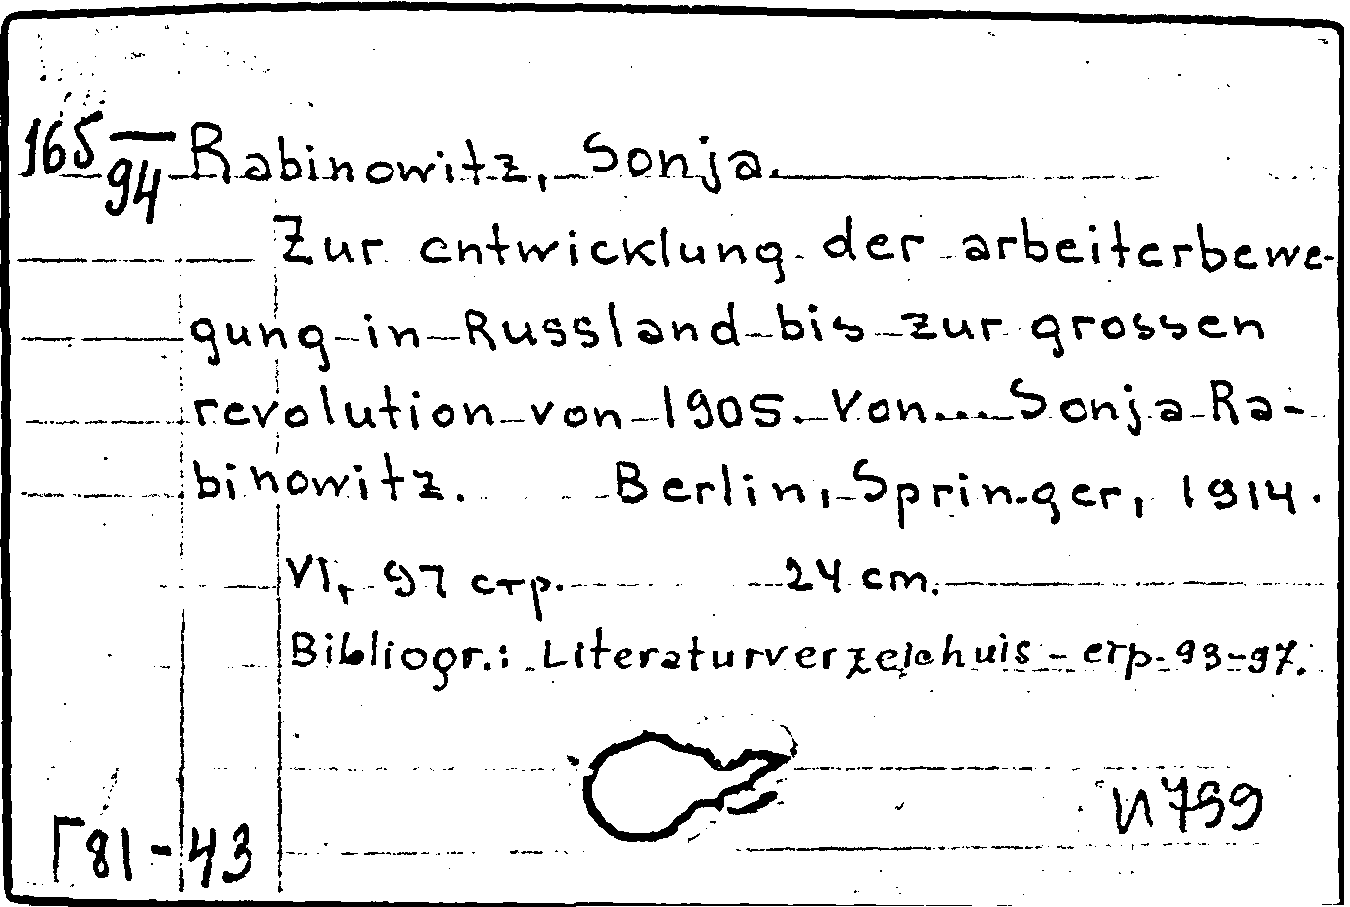 165/94 Rabinowitz, Sonja.
Zur entwicklung der arbeiterbewe-
gung in Russland bis zur grossen
revolution von 1905. Von... Sonja Ra-
binowitz. Berlin, Springer, 1914.
VI, 97 стр. 24 cm.
Bibliogr.: Literaturverzeichuis - стр. 93-97.
И 799
Г 81-43